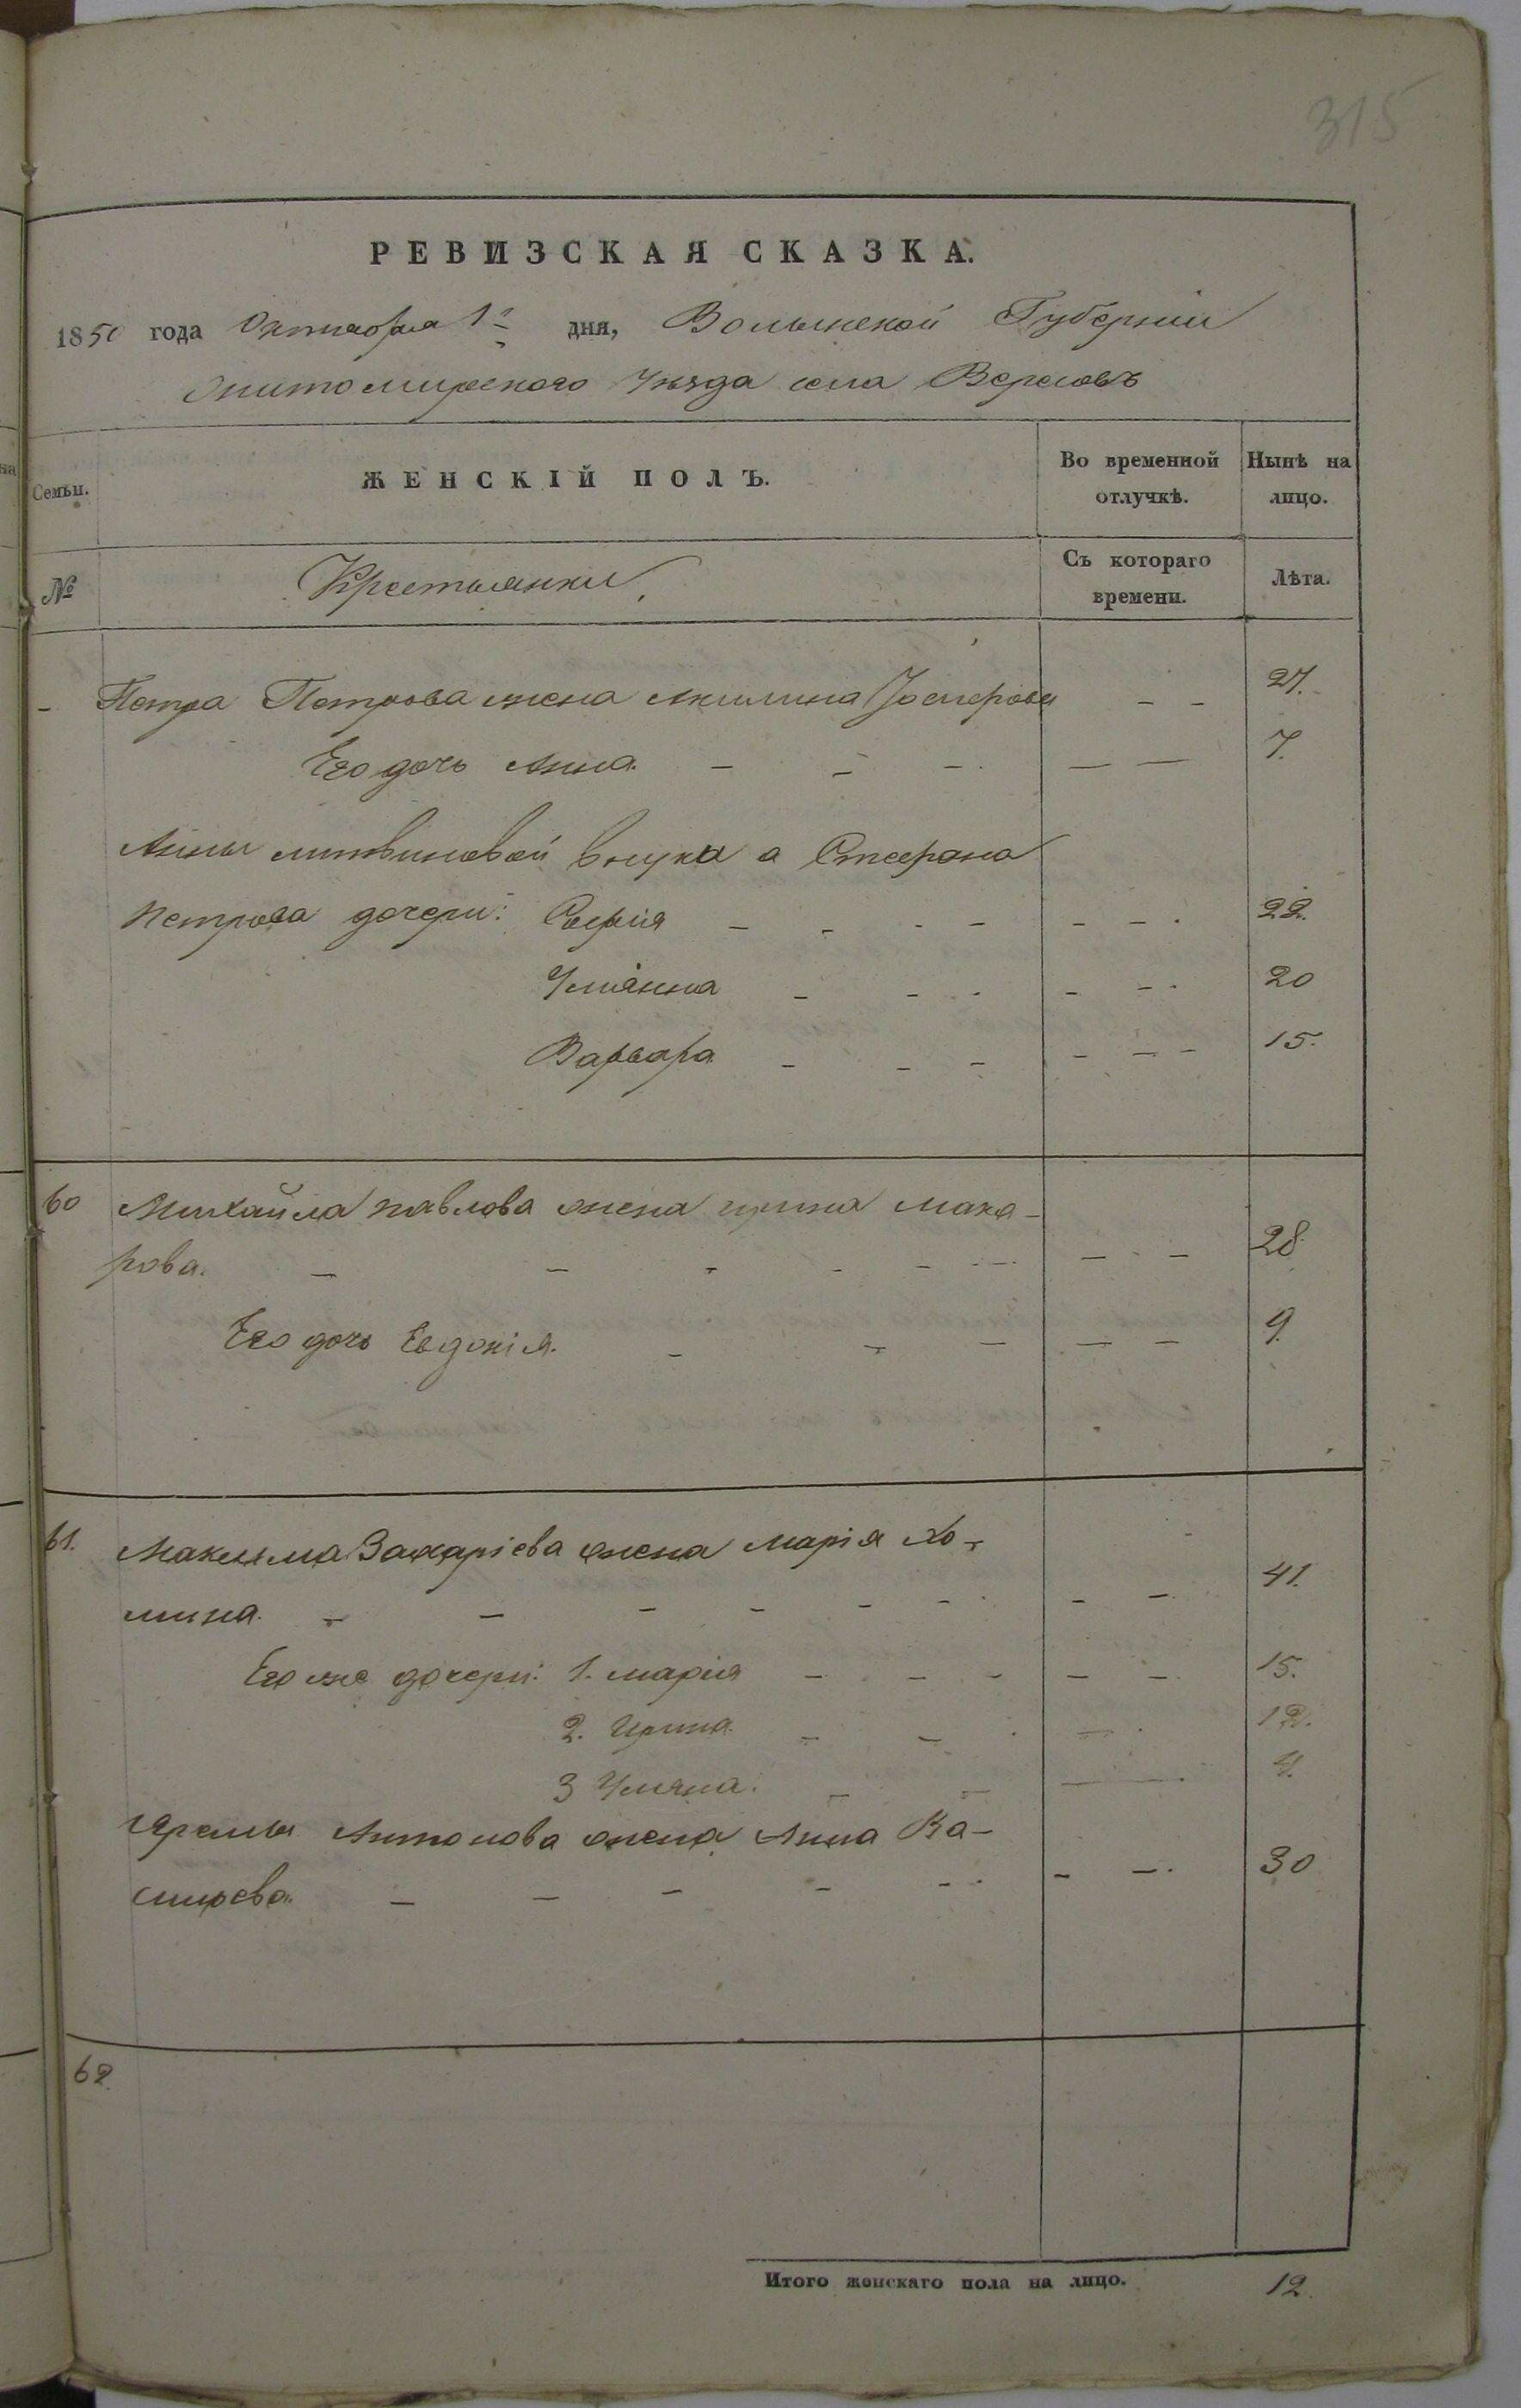 315
РЕВИЗСКАЯ СКАЗКА.
1850 года Октября 1го дня, Волынской Губернии
Житомирского Уезда села Вересовъ
на
Семьи. ЖЕНСКІЙ ПОЛЪ. Во временной отлучкѣ. Нынѣ на лицо.
№ Крестьянки Съ котораго времени. Лѣта.
- Петра Петрова жена Акилина - - 27.
Его дочь Анна. - - - - - 7.
Анны литвиновой внука а Стефана
Петрова дочери: Софія - - - - - - 22.
Уліянна - - - - - 20
Варвара - - - - - - 15.
60 Михайла павлова жена ирина мака-
рова. - - - - - - - - 28
Его дочь Евдокія. - - - - - 9.
61. Максима Захаріева жена Марія Хо-
мина. - - - - - - - - 41.
Его же дочери: 1. марія - - - - - 15.
2. Ирина. - - - 12.
3 Уляна. - - - - 4.
Яремы Антонова жена Анна Ва-
сильева. - - - - - - - 30
62.
Итого женскаго пола на лицо. 12.